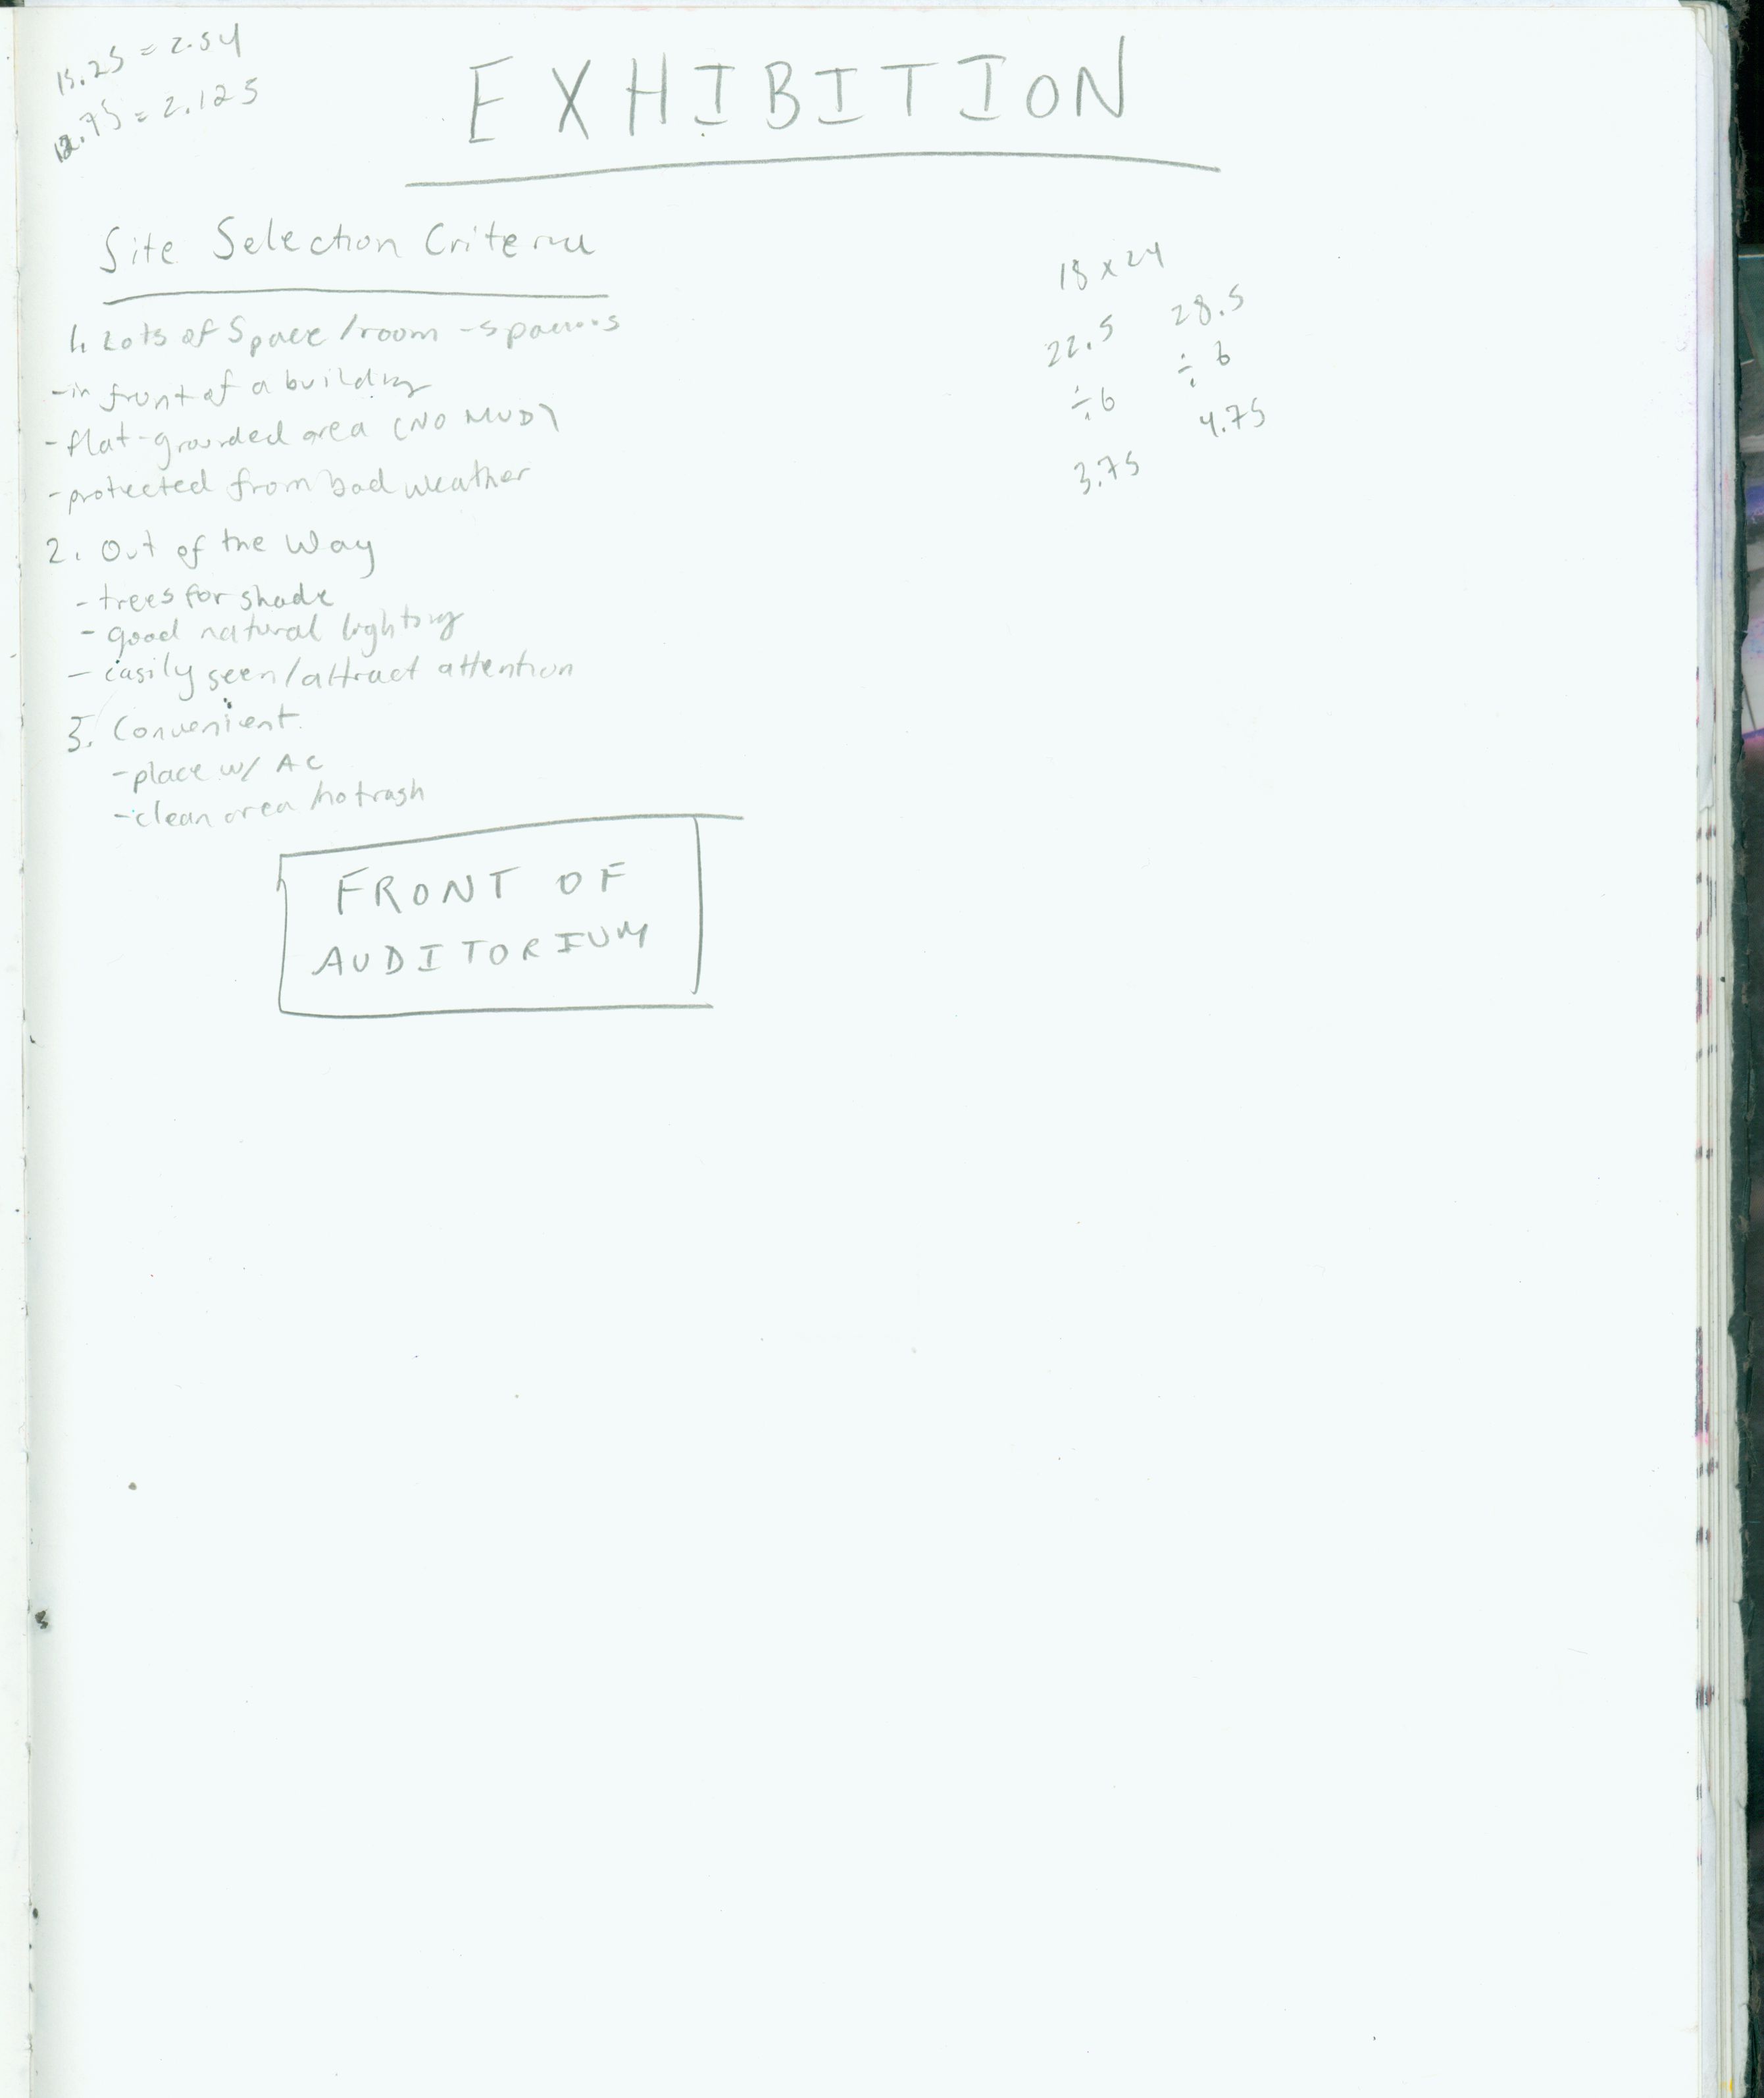 15.25 = 2.54
12.75 = 2.125
EXHIBITION
Site Selection Criteria
1. Lots of Space/room - spacious
- in front of a building
- flat-grounded area (NO MUD)
- protected from bad weather
2. Out of the Way
- trees for shade
- good natural lighting
- easily seen/attract attention
3. Convenient
- place w/ AC
- clean area/no trash
FRONT OF
AUDITORIUM
18 x 24
22.5 28.5
÷6 ÷ 6
3.75 4.75